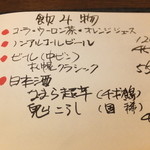 飲み物
コーラ・ウーロン茶・オレンジジュース
ノンアルコールビール
ビール(中ビン)
札幌クラシック
日本酒
なまら超辛(千歳鶴)
鬼ころし(国稀)